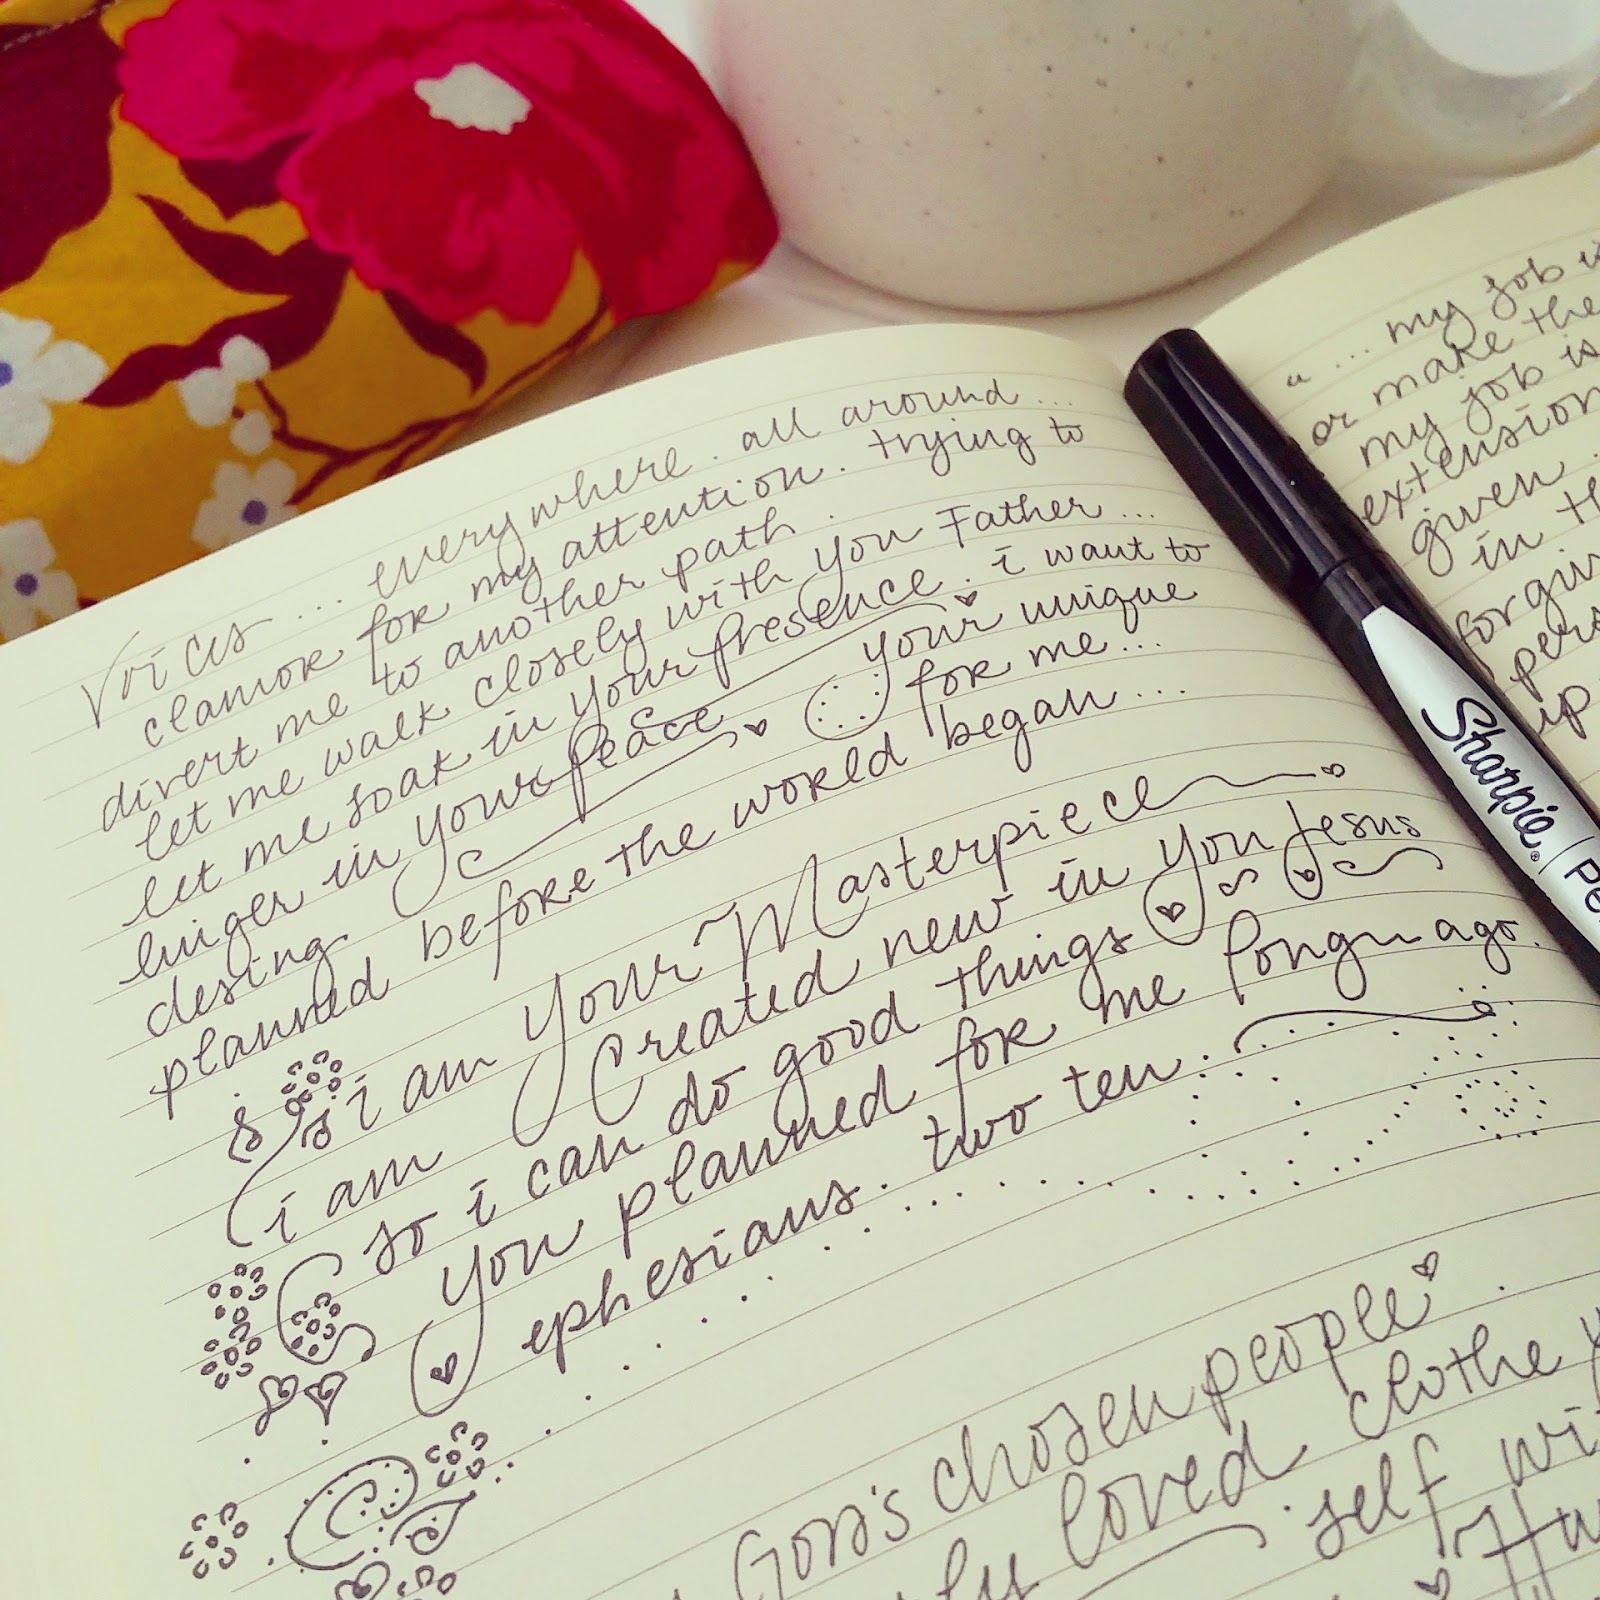 Voices... everywhere. all around...
clamor for my attention. trying to
divert me to another path.
let me walk closely with you Father...
let me soak in your presence. i want to
linger in your peace. your unique
desing for me...
planned before the world began...
i am your Masterpiece
i am created new in you Jesus
so i can do good things
you planned for me long ago.
ephesians. two ten.
God's chosen people
loved. clothe
self
"... my job is
or make the
my job is
extension
given.
in
up
Sharpie.